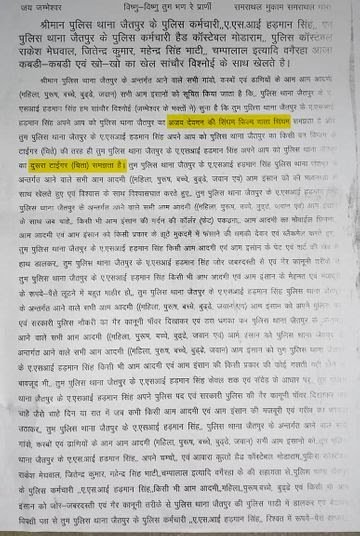 जय जम्भेश्वर विष्णु-विष्णु तुम भण रे प्राणी समराथल मुकाम समराथल
श्रीमान पुलिस थाना जैतपुर के पुलिस कर्मचारी,,ए.एस.आई हडमान सिंह,, एवं
पुलिस थाना जैतपुर के पुलिस कर्मचारी हैड कॉस्टेबल मोडाराम,, पुलिस कॉस्टेबल
राकेश मेघवाल, जितेन्द्र कुमार, महेन्द्र सिंह भाटी,, चम्पालाल इत्यादि वगैरहा
कबडी-कबडी एवं खो-खो का खेल सांचौर विश्नोई के साथ खेलते है।
श्रीमान पुलिस थाना जैतपुर के अन्तरगर्त आने वाले सभी गांवो, कस्बों एवं ढाणियों के आम आम आदमी
(महिला, पुरूष, बच्चे, बुढ्ढे, जवान) सभी आम इंसानो को सूचित किया जाता है कि,, पुलिस थाना जैतपुर के
ए.एसआई हडमान सिंह हम सांचौर विश्नोई (जम्भेश्वर के भक्तों ने) सुना है कि तुम पुलिस थाना जैतपुर के
हडमान सिंह अपने आप को पुलिस थाना जैतपुर का अजय देवगन की सिंघम फिल्म वाला सिंघम समझता है
तुम पुलिस थाना जैतपुर के ए.एसआई हडमान सिंह अपने आप को पुलिस थाना जैतपुर का किसी वन विभाग
टाईगर (चिते) की तरह ही तुम पुलिस थाना जैतपुर के ए.एसआई हडमान सिंह अपने आप को पुलिस थाना जैतपुर
का दुसरा टाईगर (चिता) समझता है। तुम पुलिस थाना जैतपुर के ए.एसआई हडमान सिंह पुलिस थाना जैतपुर
अन्तगर्त आने वाले सभी आम आदमी ((महिला, पुरूष, बच्चे, बुढ्ढे, जवान) एवं आम इंसान
साथ खेलते हुए एवं विश्वास के साथ विश्वासघात करते हुए,, तुम पुलिस थाना जैतपुर के ए.एसआई हडमान सिंह
पुलिस थाना जैतपुर के अन्तगर्त आने वाले सभी आम आदमी ((महिला, पुरूष, बच्चे, बुढ्ढे, जवान) एवं आम
के साथ जब चाहे, किसी भी आम इंसान की गर्दन की कॉर्लर (फेट) पकडना, आम आदमी का मोबाईल
आम आदमी एवं आम इंसान को किसी प्रकार के झुठे मुकदमें में फंसाने की धमकी देकर एवं ब्लैकमेल करते हुए,
तुम पुलिस थाना जैतपुर के ए.एसआई हडमान सिंह किसी भी आम आदमी एवं आम इंसान के पेट
हाथ डालकर, तुम पुलिस थाना जैतपुर के ए.एसआई हडमान सिंह जोर जबरदस्ती से एवं गैर कानूनी तरीके
तुम पुलिस थाना जैतपुर के ए.एसआई हडमान सिंह किसी भी आम आदमी एवं आम इंसान के मेहनत एवं
के रूपये-पैसे लूटने में बहुत माहीर हो,, तुम पुलिस थाना जैतपुर के ए.एसआई हडमान सिंह पुलिस थाना जैतपुर
के अन्तगर्त आने वाले सभी आम आदमी ((महिला, पुरूष, बच्चे, बुढ्ढे, जवान) आम इंसान को अपने पुलिस
एवं सरकारी पुलिस नौकरी का गैर कानूनी पॉवर दिखाकर एवं डरा धमका कर पुलिस थाना जैतपुर के
आने वाले सभी आम आदमी ((महिला, पुरूष, बच्चे, बुढ्ढे, जवान) आम इंसान को पुलिस थाना जैतपुर
अन्तगर्त आने वाले सभी आम आदमी ((महिला, पुरूष, बच्चे, बुढ्ढे, जवान) आम इंसान को तुम पुलिस थाना
जैतपुर के ए.एसआई हडमान सिंह किसी भी आम आदमी एवं आम इंसान की किसी प्रकार की कोई गलती नही
बावजूद भी,, तुम पुलिस थाना जैतपुर के ए.एसआई हडमान सिंह केवल शक एवं संदेह के आधार पर, तुम पुलिस
थाना जैतपुर के ए.एसआई हडमान सिंह अपने पुलिस पद एवं सरकारी पुलिस की गैर कानूनी पॉवर दिखाकर
चाहे जैसे चाहे दिन या रात में जब कभी किसी आम आदमी एवं आम इंसान की मजबूरी एवं गरीब का
उठाकर, तुम पुलिस थाना जैतपुर के ए.एसआई हडमान सिंह,, पुलिस थाना जैतपुर के अन्तगर्त आने वाले सभी
गांवो, कस्बों एवं ढाणियों के आम आदमी (महिला, पुरूष, बच्चे, बुढ्ढे, जवान) सभी आम इंसानो को तुम पुलिस
थाना जैतपुर के ए.एसआई हडमान सिंह,, अपने चम्चो,, एवं आवारा कुत्तो हैड कॉस्टेबल मोडाराम,पुलिस कॉस्टेबल
राकेश मेघवाल, जितेन्द्र कुमार, महेन्द्र सिंह भाटी,,चम्पालाल इत्यादि वगैरहा के की सहायता से,पुलिस थाना जैतपुर
के पुलिस कर्मचारी ,,ए.एसआई हडमान सिंह,,किसी भी आम आदमी,,महिला,,पुरूष,बच्चे, बुढ्ढे, जवान एवं आम
इंसान को जोर-जबरदस्ती से एवं गैर कानूनी तरीके से पुलिस थाना जैतपुर की पुलिस की गाडी में डालकर एवं
विपक्षी पक्ष से तुम पुलिस थाना जैतपुर के पुलिस कर्मचारी ,,ए.एसआई हडमान सिंह,, रिश्वत में रूपये-पैसे